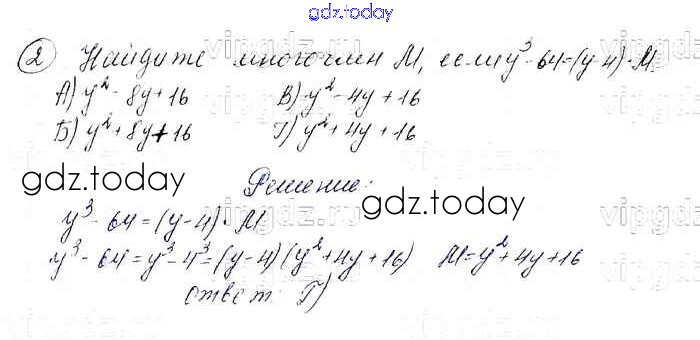 gdz.today
2) Найдите многочлен М, если y³ - 64 = (y - 4) · М.
А) y² - 8y + 16 В) y² - 4y + 16
Б) y² + 8y + 16 Г) y² + 4y + 16
Решение:
gdz.today gdz.today
y³ - 64 = (y - 4) · М
y³ - 64 = y³ - 4³ = (y - 4)(y² + 4y + 16) М = y² + 4y + 16
ответ: Г)